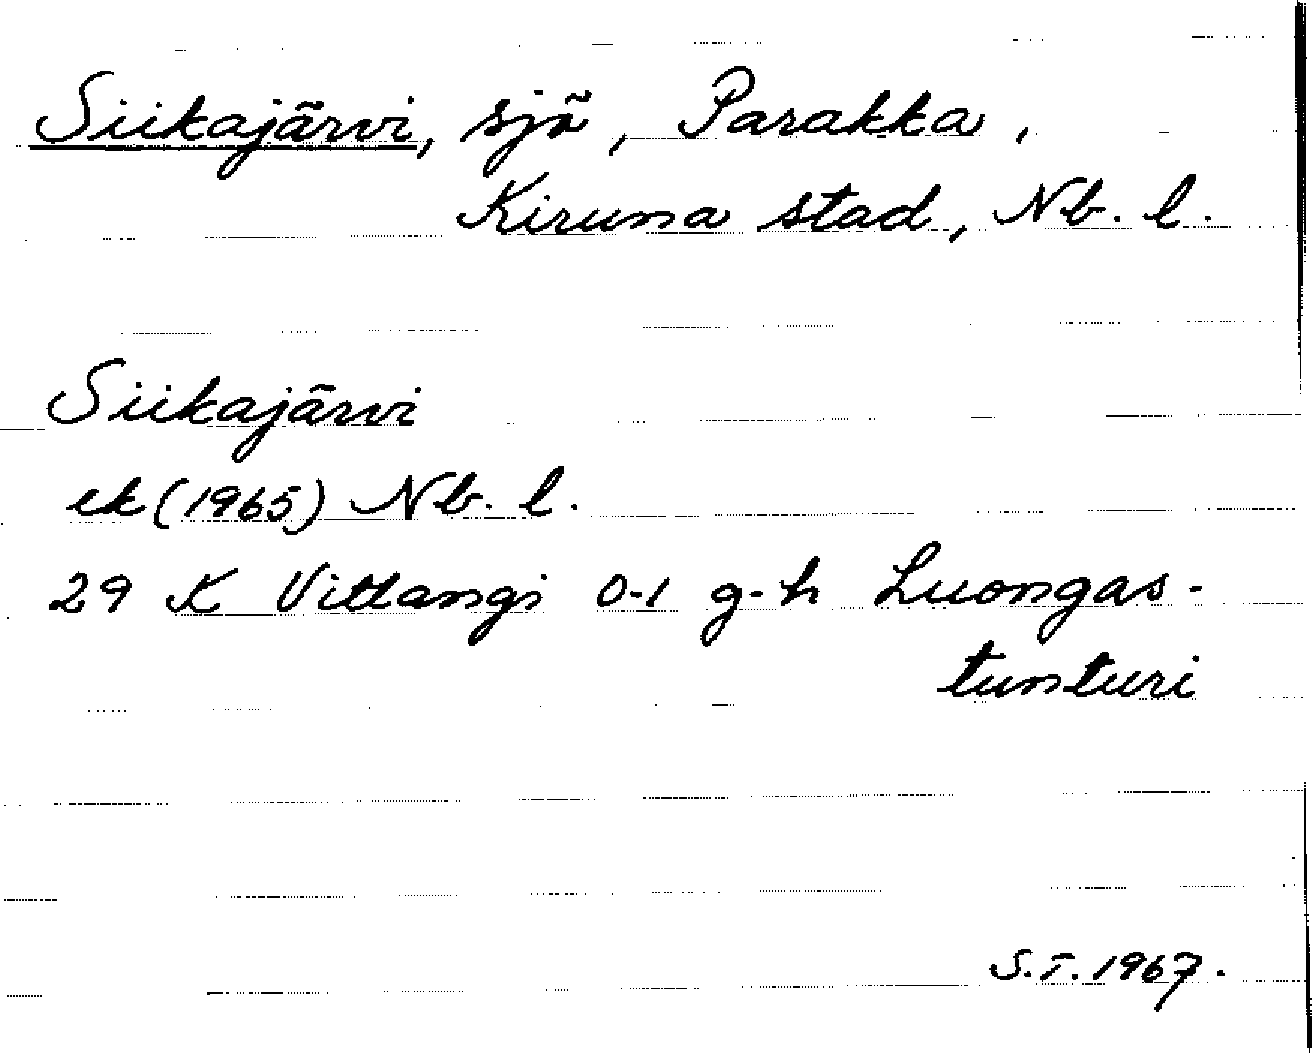 Siikajärvi, sjö, Parakka,
Kiruna stad, Nb. l.
Siikajärvi
ek (1965) Nb. l.
29 K Vittangi 0-1 g-h Luongas-
tunturi
S.T. 1967.